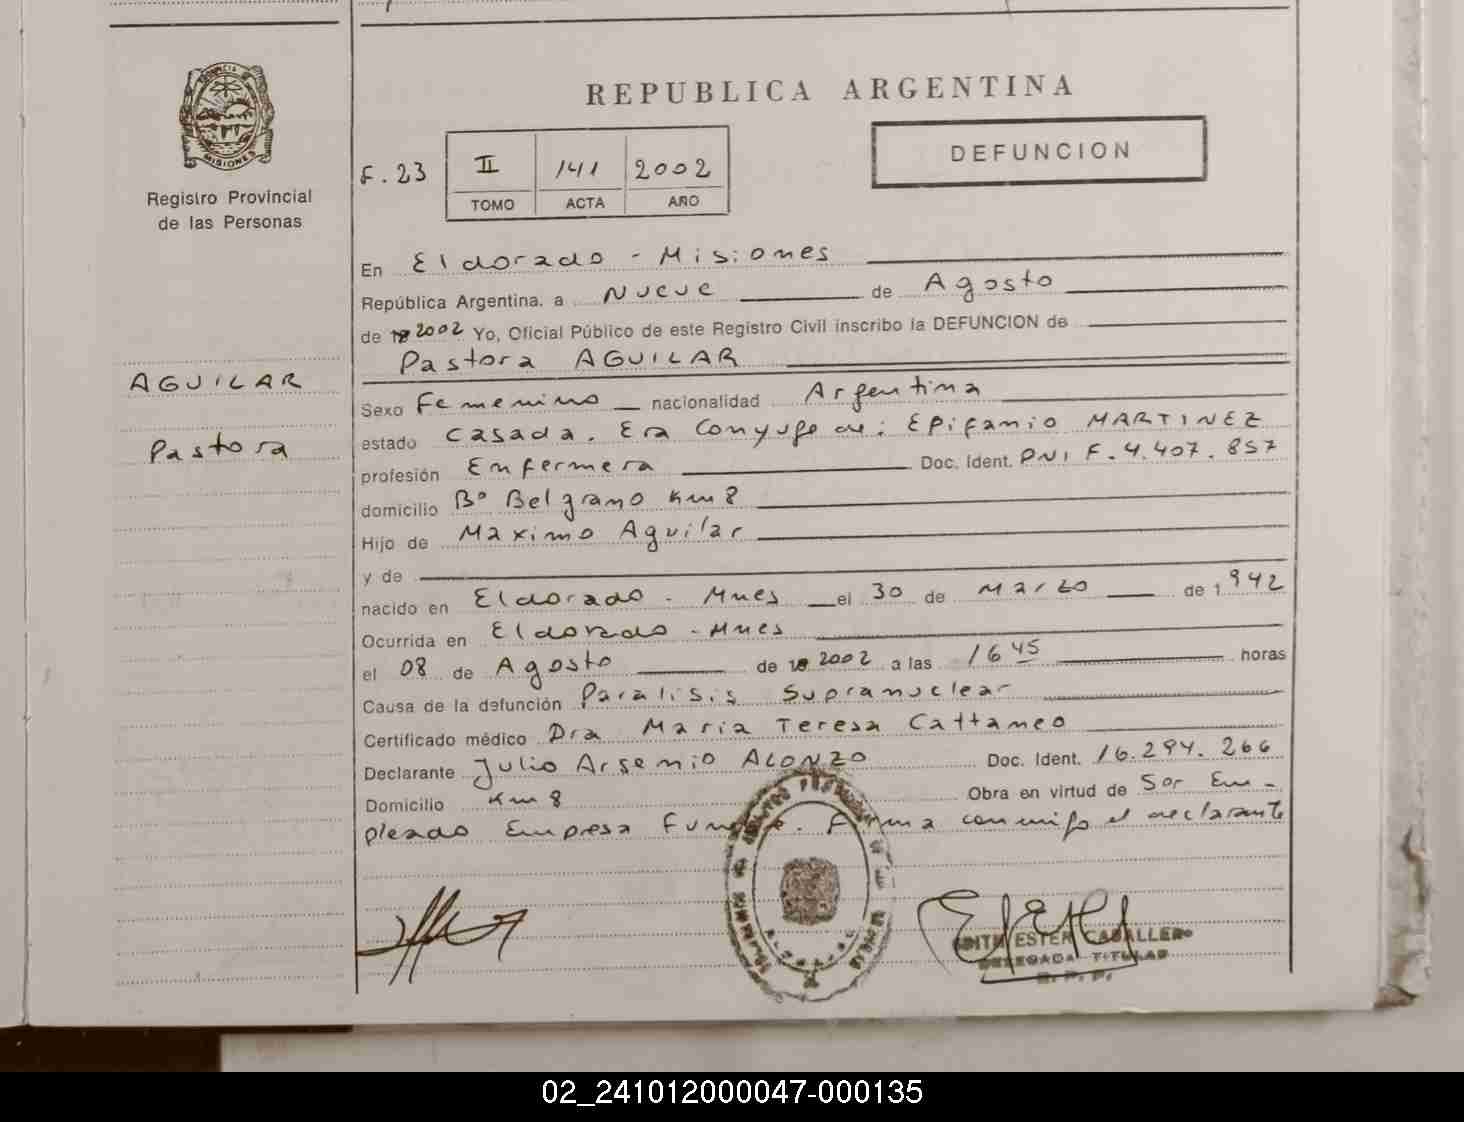 REPUBLICA ARGENTINA
PROVINCIA DE
MISIONES
Registro Provincial
de las Personas
F. 23
II 141 2002
TOMO ACTA AÑO
DEFUNCION
AGUILAR
Pastora
En Eldorado - Misiones
República Argentina, a Nueve de Agosto
de 2002 Yo, Oficial Público de este Registro Civil inscribo la DEFUNCION de
Pastora AGUILAR
Sexo Femenino nacionalidad Argentina
estado Casada. Era Conyuge de: EPifanio MARTINEZ
profesión Enfermera Doc. Ident. DNI F. 4.407.857
domicilio Bº Belgrano Km 8
Hijo de Maximo Aguilar
y de
nacido en Eldorado - Mnes el 30 de Marzo de 1942
Ocurrida en Eldorado - Mnes
el 08 de Agosto de 2002 a las 16 45 horas
Causa de la defunción Paralisis Supranuclear
Certificado médico Dra Maria Teresa Cattaneo
Declarante Julio Arsenio ALONZO Doc. Ident. 16.294.266
Domicilio Km 8 Obra en virtud de Ser Em-
pleado Empresa Firma conmigo el declarante
EDITH ESTER CABALLERO
DELEGADA TITULAR
R. P. P.
02_241012000047-000135